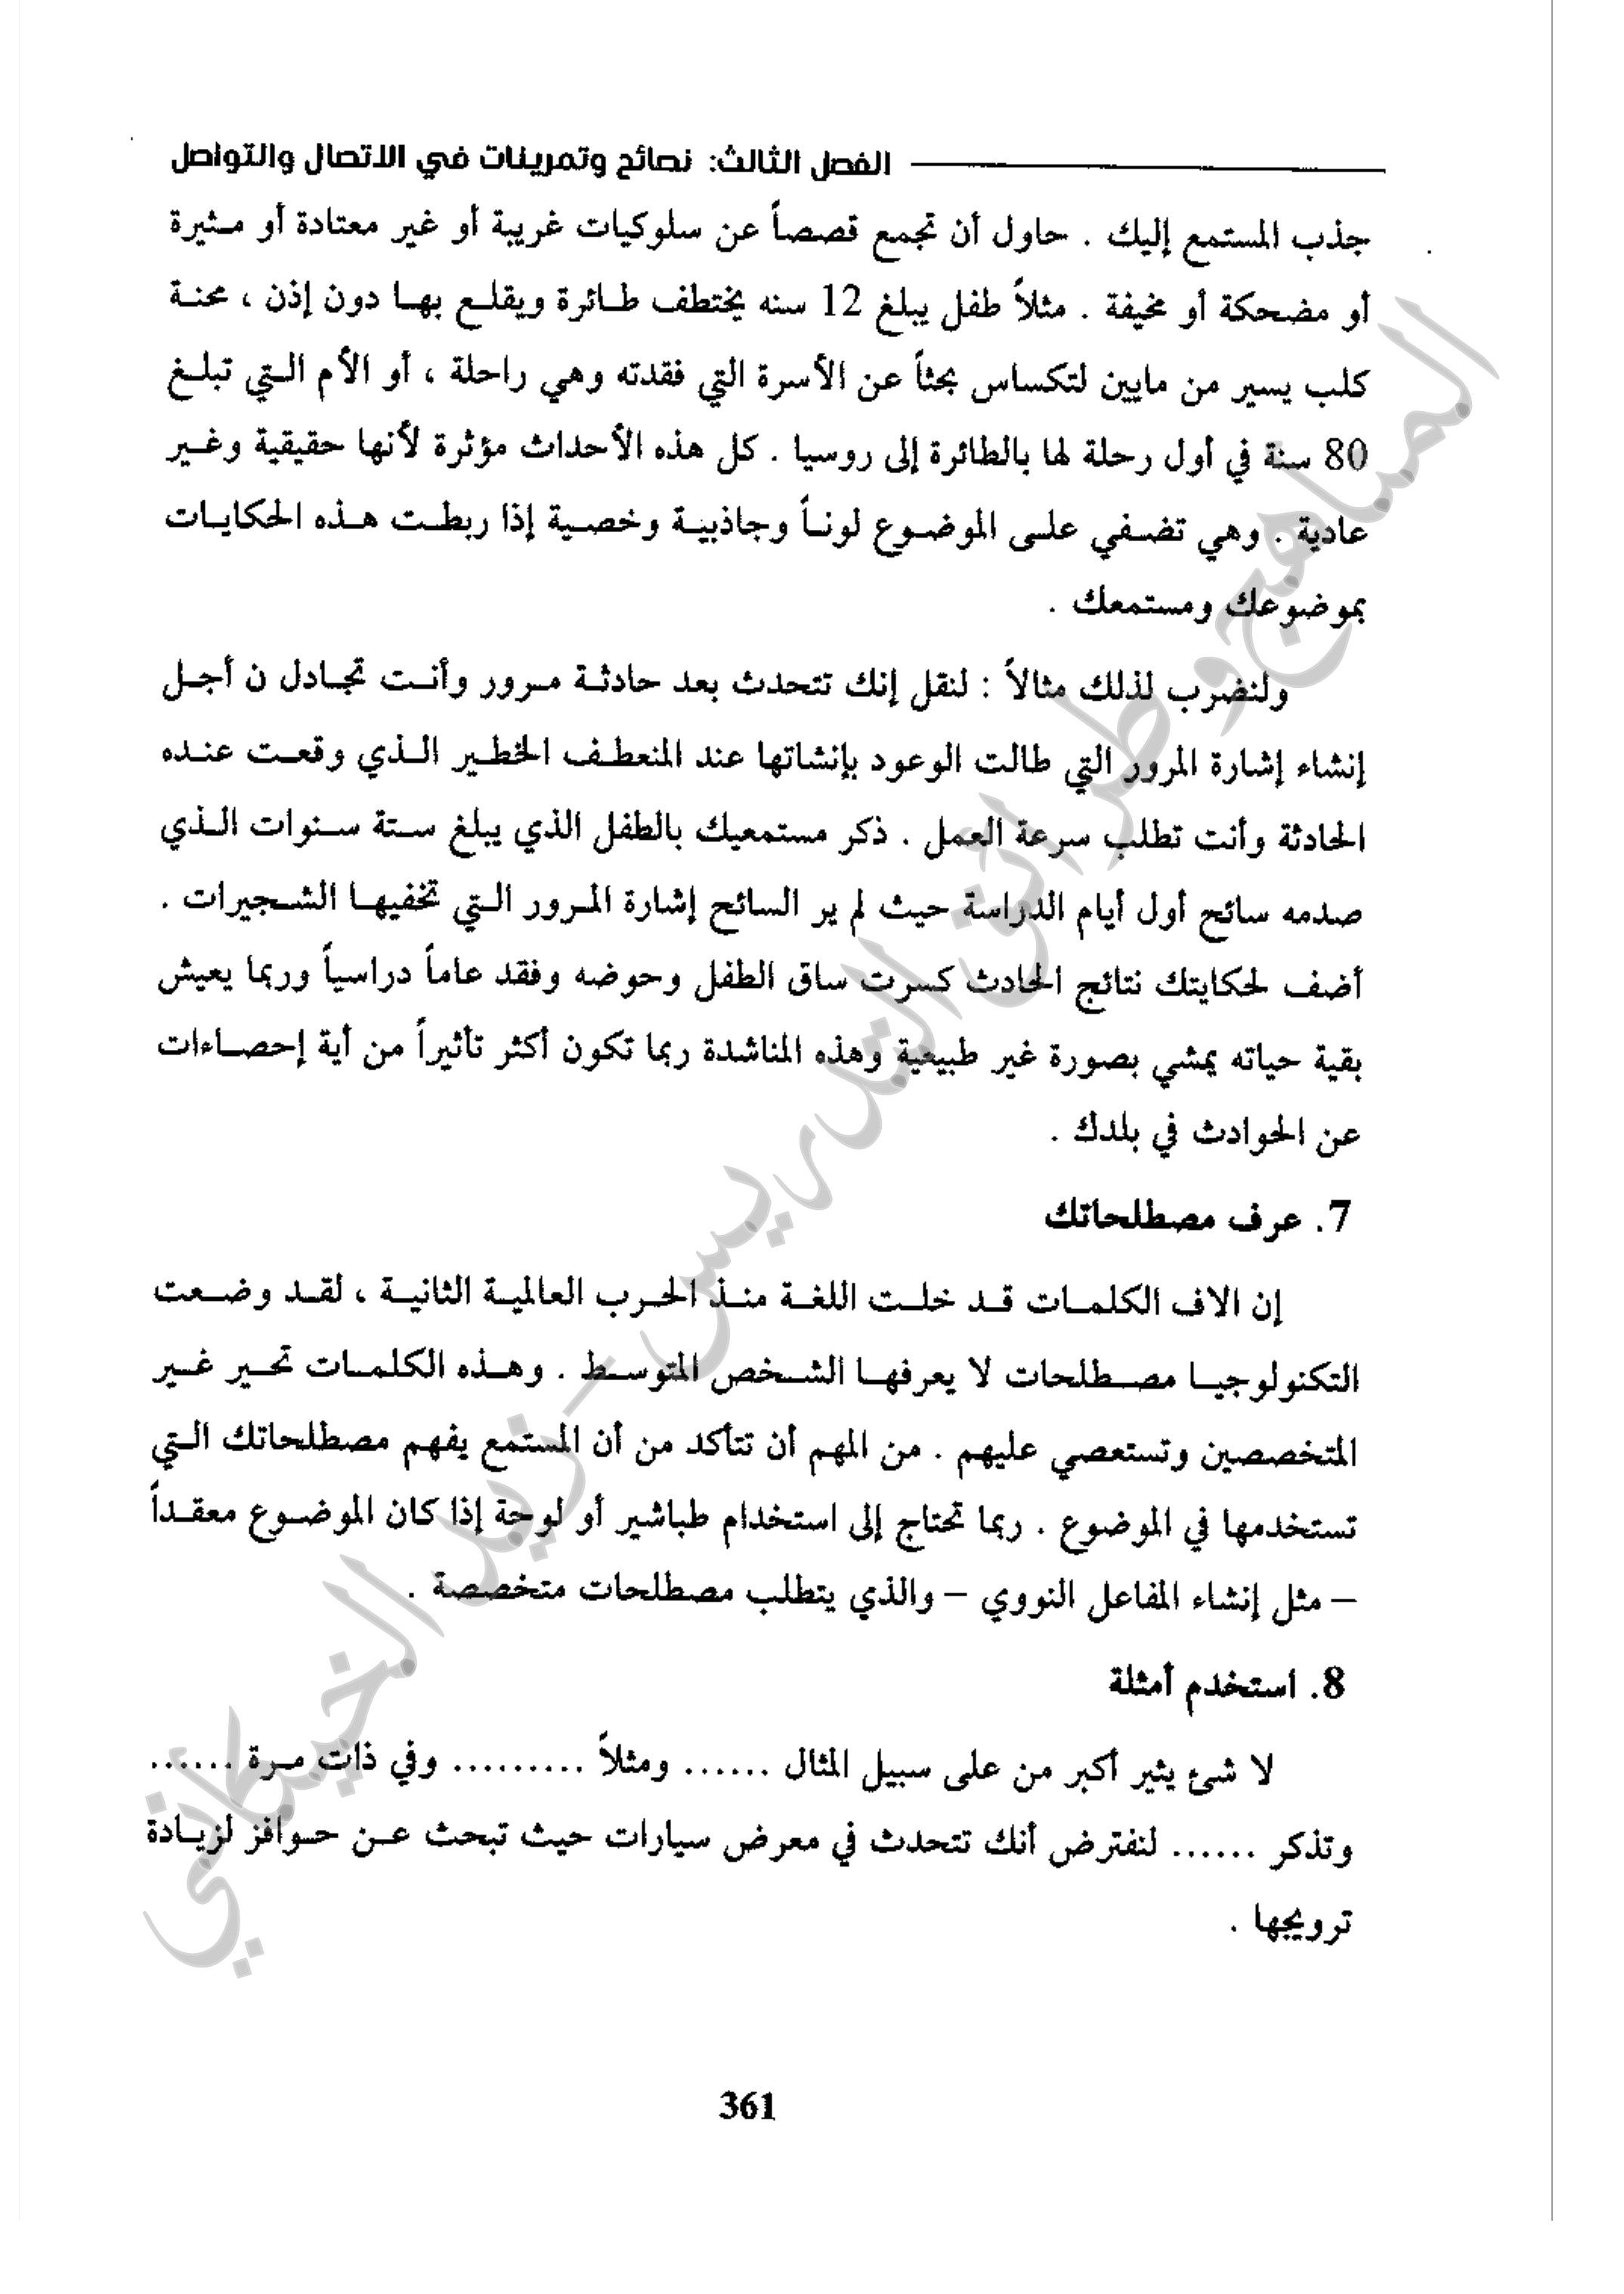 الفصل الثالث: نصائح وتمرينات في الاتصال والتواصل
جذب المستمع إليك . حاول أن تجمع قصصاً عن سلوكيات غريبة أو غير معتادة أو مثيرة
أو مضحكة أو مخيفة . مثلاً طفل يبلغ 12 سنه يختطف طائرة ويقلع بها دون إذن ، محنة
كلب يسير من مايين لتكساس بحثاً عن الأسرة التي فقدته وهي راحلة ، أو الأم التي تبلغ
80 سنة في أول رحلة لها بالطائرة إلى روسيا . كل هذه الأحداث مؤثرة لأنها حقيقية وغير
عادية . وهي تضفي على الموضوع لوناً وجاذبية وخصية إذا ربطت هذه الحكايات
بموضوعك ومستمعك .
ولنضرب لذلك مثالاً : لنقل إنك تتحدث بعد حادثة مرور وأنت تجادل ن أجل
إنشاء إشارة المرور التي طالت الوعود بإنشاتها عند المنعطف الخطير الذي وقعت عنده
الحادثة وأنت تطلب سرعة العمل . ذكر مستمعيك بالطفل الذي يبلغ ستة سنوات الذي
صدمه سائح أول أيام الدراسة حيث لم ير السائح إشارة المرور التي تخفيها الشجيرات .
أضف لحكايتك نتائج الحادث كسرت ساق الطفل وحوضه وفقد عاماً دراسياً وربما يعيش
بقية حياته يمشي بصورة غير طبيعية وهذه المناشدة ربما تكون أكثر تأثيراً من أية إحصاءات
عن الحوادث في بلدك .
7. عرف مصطلحاتك
إن الاف الكلمات قد خلت اللغة منذ الحرب العالمية الثانية ، لقد وضعت
التكنولوجيا مصطلحات لا يعرفها الشخص المتوسط . وهذه الكلمات تحير غير
المتخصصين وتستعصي عليهم . من المهم أن تتأكد من أن المستمع يفهم مصطلحاتك التي
تستخدمها في الموضوع . ربما تحتاج إلى استخدام طباشير أو لوحة إذا كان الموضوع معقداً
– مثل إنشاء المفاعل النووي – والذي يتطلب مصطلحات متخصصة .
8. استخدم أمثلة
لا شئ يثير أكبر من على سبيل المثال ...... ومثلاً ......... وفي ذات مرة ......
وتذكر ...... لنفترض أنك تتحدث في معرض سيارات حيث تبحث عن حوافز لزيادة
ترويجها .
361
المناهج وطرائق التدريس – زيد الخيكاني